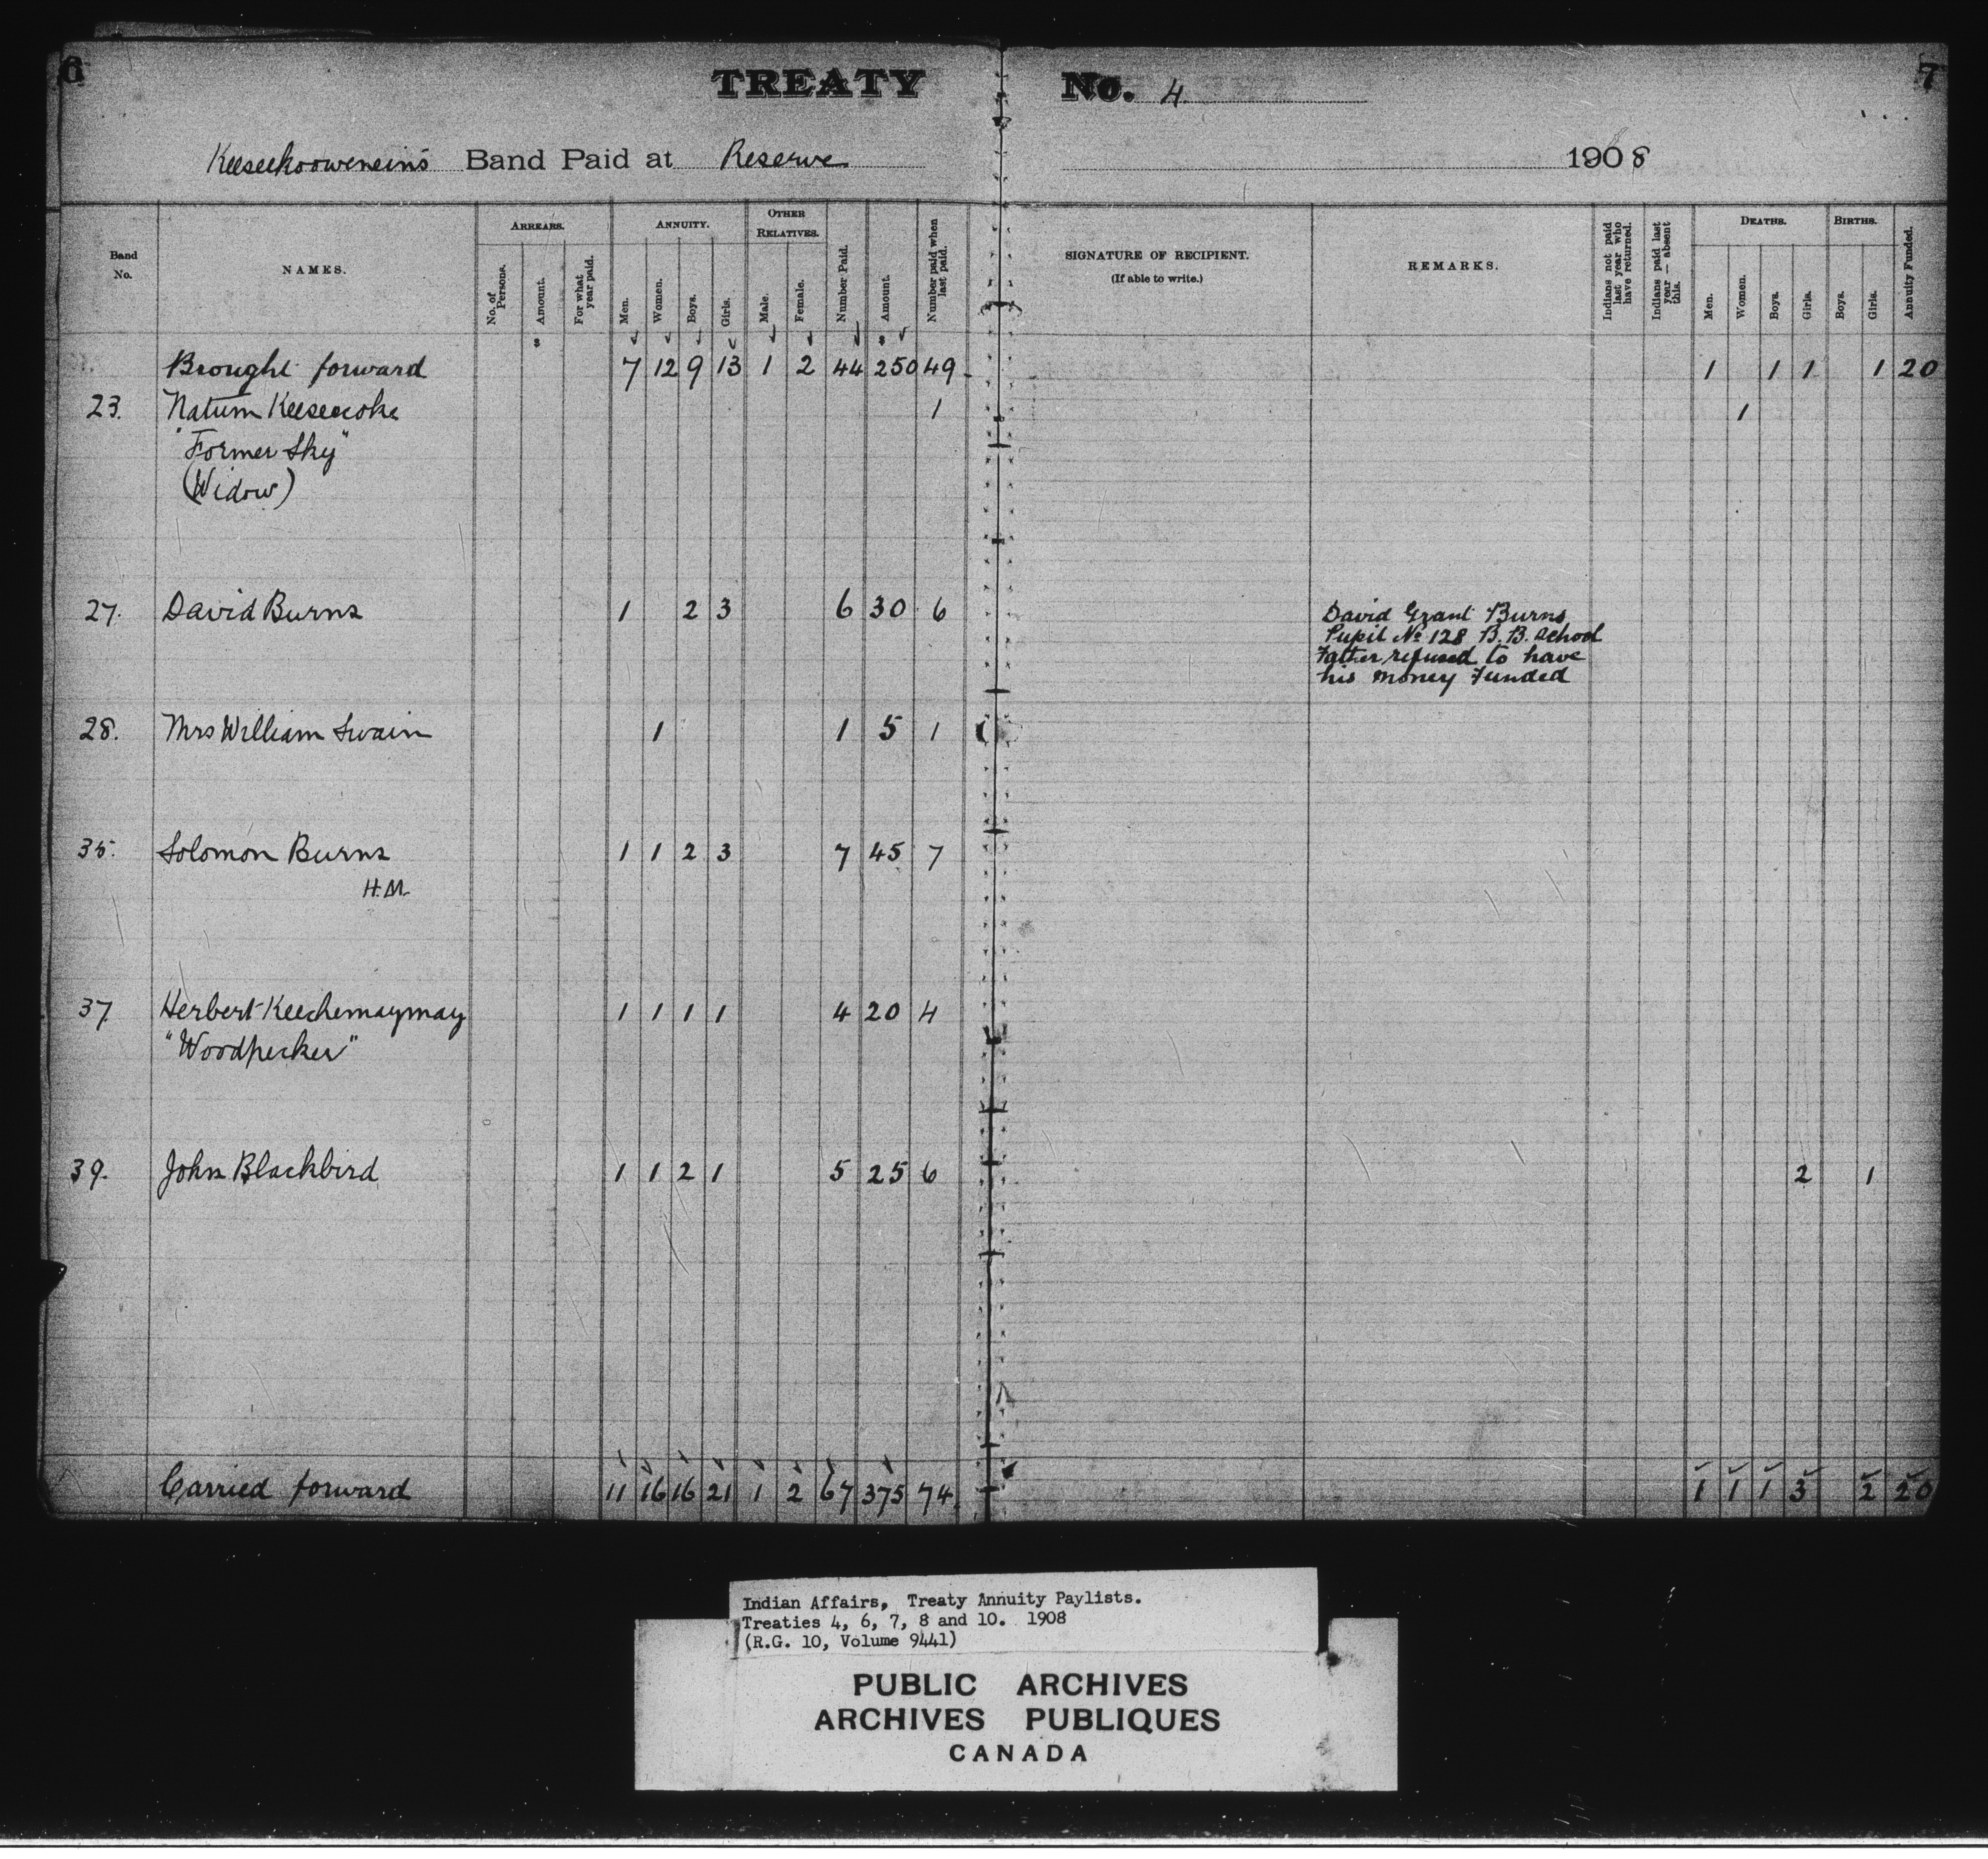 6
TREATY No. 4.
7
Keeseekoowenein's Band Paid at Reserve
1908
Band No.
NAMES.
ARREARS.
No. of Persons.
Amount.
For what year paid.
ANNUITY.
Men.
Women.
Boys.
Girls.
OTHER RELATIVES.
Male.
Female.
Number Paid.
Amount.
Number paid when last paid.
SIGNATURE OF RECIPIENT.
(If able to write.)
REMARKS.
Indians not paid last year who have returned.
Indians paid last year — absent this.
DEATHS.
Men.
Women.
Boys.
Girls.
BIRTHS.
Boys.
Girls.
Annuity Funded.
Brought forward 7 12 9 13 1 2 44 250 49 1 1 1 1 20
23. Natum 1 1
"Former Sky"
(Widow)
27. David Burns 1 2 3 6 30 6
David Grant Burns
Pupil No 128 B. B. School
Father refused to have
his money Funded
28. Mrs William Swain 1 1 5 1
35. Solomon Burns 1 1 2 3 7 45 7
H.M.
37. Herbert Keechemaymay 1 1 1 1 4 20 4
"Woodpecker"
39. John Blackbird 1 1 2 1 5 25 6 2 1
Carried forward 11 16 16 21 1 2 67 375 74. 1 1 1 3 2 20
Indian Affairs, Treaty Annuity Paylists.
Treaties 4, 6, 7, 8 and 10. 1908
(R.G. 10, Volume 9441)
PUBLIC ARCHIVES
ARCHIVES PUBLIQUES
CANADA